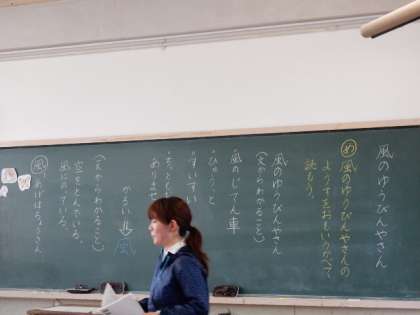 風のゆうびんやさん
め 風のゆうびんやさんの
ようすをおもいうかべて
読もう。
風のゆうびんやさん
(文からわかること)
・風のじてん車
・ひゅうと
・すいすい
あります
かるい
風
(文からわかること)
空をとんでいる。
風にのっている。
風 あげはちょうさん